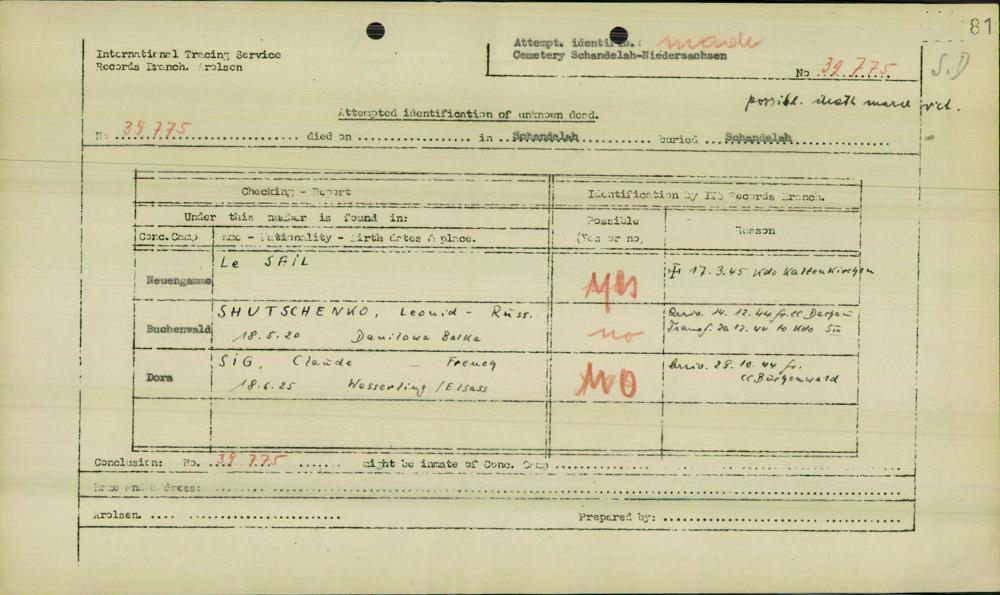 81
International Tracing Service
Records Branch. Arolsen
Attempt. identific.: made
Cemetery Schandelah-Niedersachsen
No 39.775
S.D
possibl. death march vict.
Attempted identification of unknown dead.
No 39 775 died on in Schandelah buried Schandelah
Checking - Report
Identification by ITS Records Branch.
Under this number is found in:
Possible
(Yes or no)
Reason
Conc.Camp
Name - Nationality - Birth dates & place.
Neuengamme
Le SAIL
yes
17.3.45 Kdo Kaltenkirchen
Buchenwald
SHUTSCHENKO, Leonid - Russ.
18.5.20 Danilowa Balka
no
Arriv. 14.12.44 fr. CC Dachau
Transf. 20.12.44 to Kdo SIII
Dora
SIG, Claude - French
18.6.25 Wesserling /Elsass
NO
Arriv. 28.10.44 fr.
CC Buchenwald
Conclusion: No. 39 775 might be inmate of Conc. Camp
Name and address:
Arolsen.
Prepared by: